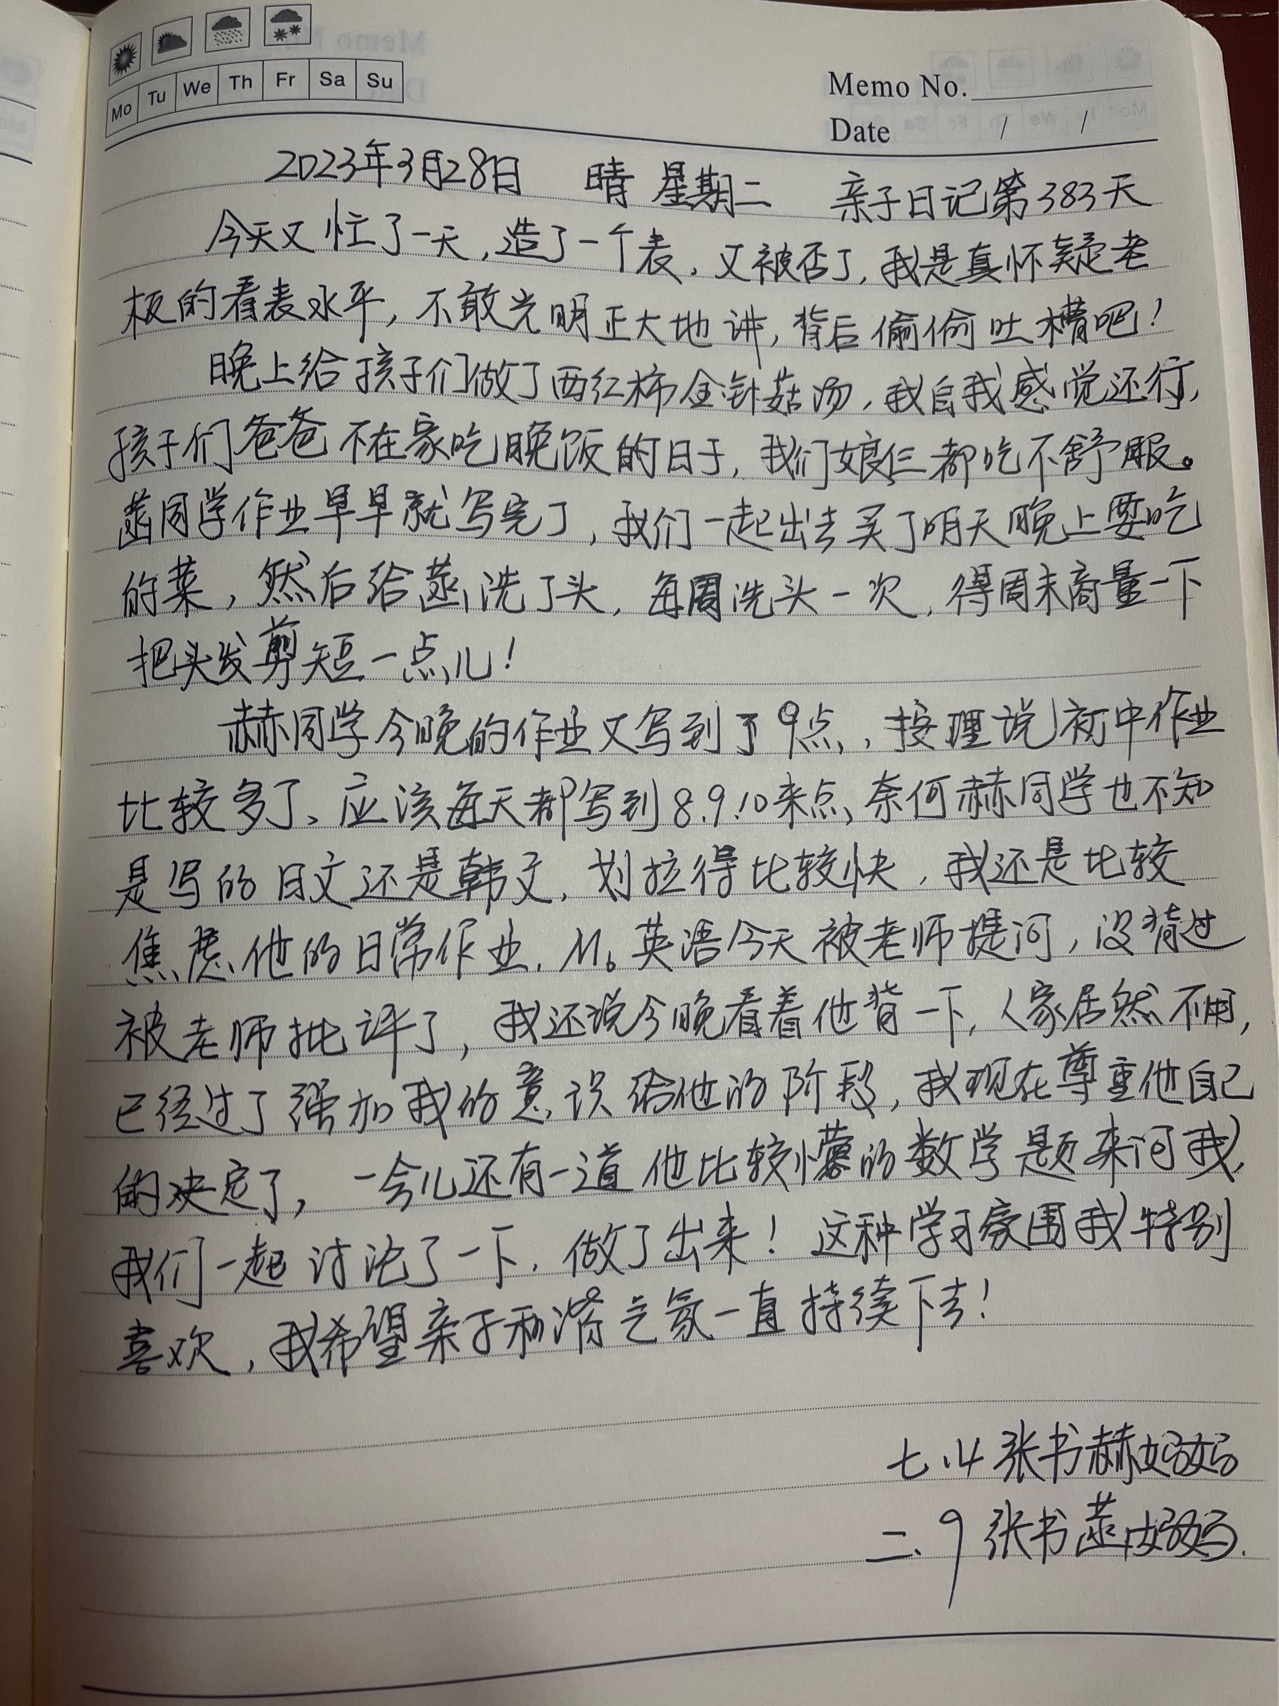 Mo Tu We Th Fr Sa Su
Memo No.
Date / /
2023年3月28日 晴 星期二 亲子日记第383天
今天又忙了一天,造了一个表,又被否了,我是真怀疑老
板的看表水平,不敢光明正大地讲,背后偷偷吐槽吧!
晚上给孩子们做了西红柿金针菇汤,我自我感觉还行,
孩子们爸爸不在家吃晚饭的日子,我们娘仨都吃不舒服。
同学作业早早就写完了,我们一起出去买了明天晚上要吃
的菜,然后给洗了头,每周洗头一次,得周末商量一下
把头发剪短一点儿!
赫同学今晚的作业又写到了9点,按理说初中作业
比较多了。应该每天都写到8.9.10来点,奈何赫同学也不知
是写的日文还是韩文,划拉得比较快,我还是比较
焦虑他的日常作业,英语今天被老师提问,没背过
被老师批评了,我还说今晚看着他背一下,人家居然不用,
已经过了强加我的意识给他的阶段,我现在尊重他自己
的决定了,一会儿还有一道他比较懵的数学题来问我,
我们一起讨论了一下,做了出来!这种学习氛围我特别
喜欢,我希望亲子和谐气氛一直持续下去!
七.4 张书赫妈妈
二.9 张书妈妈.